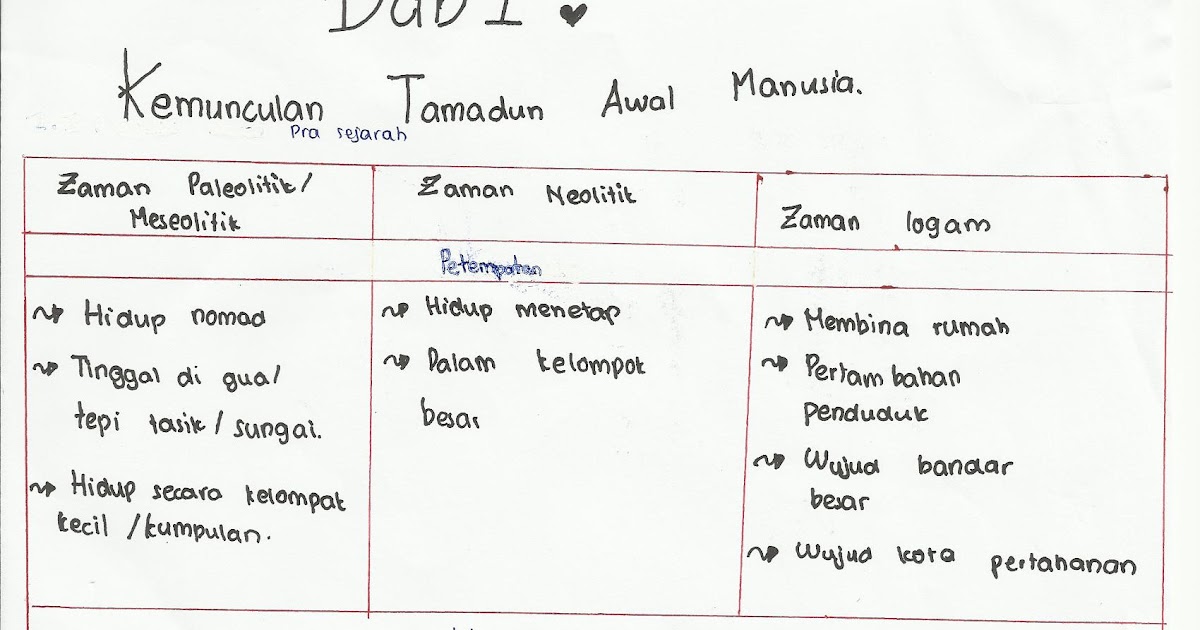 Bab 1 ♥
Kemunculan Tamadun Awal Manusia.
Pra sejarah
Zaman Paleolitik/
Meseolitik
Zaman Neolitik
Zaman logam
Petempatan
Hidup nomad
Tinggal di gua/
tepi tasik / sungai.
Hidup secara kelompat
kecil /kumpulan.
Hidup menetap
Dalam kelompok
besar
Membina rumah
Pertambahan
penduduk
Wujud bandar
besar
Wujud kota pertahanan